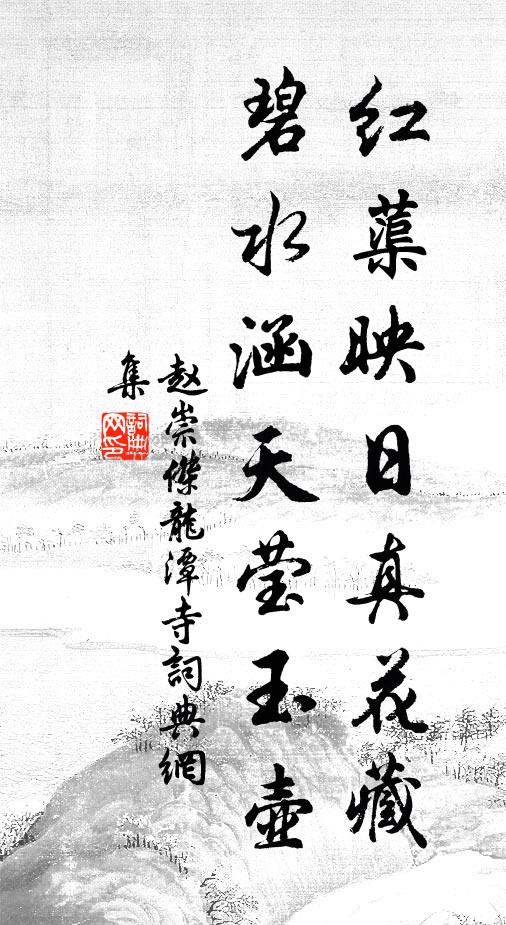 红蕖映日真花藏
碧水涵天莹玉壶
赵崇傑龍潭寺詞典網
集
詞典网印